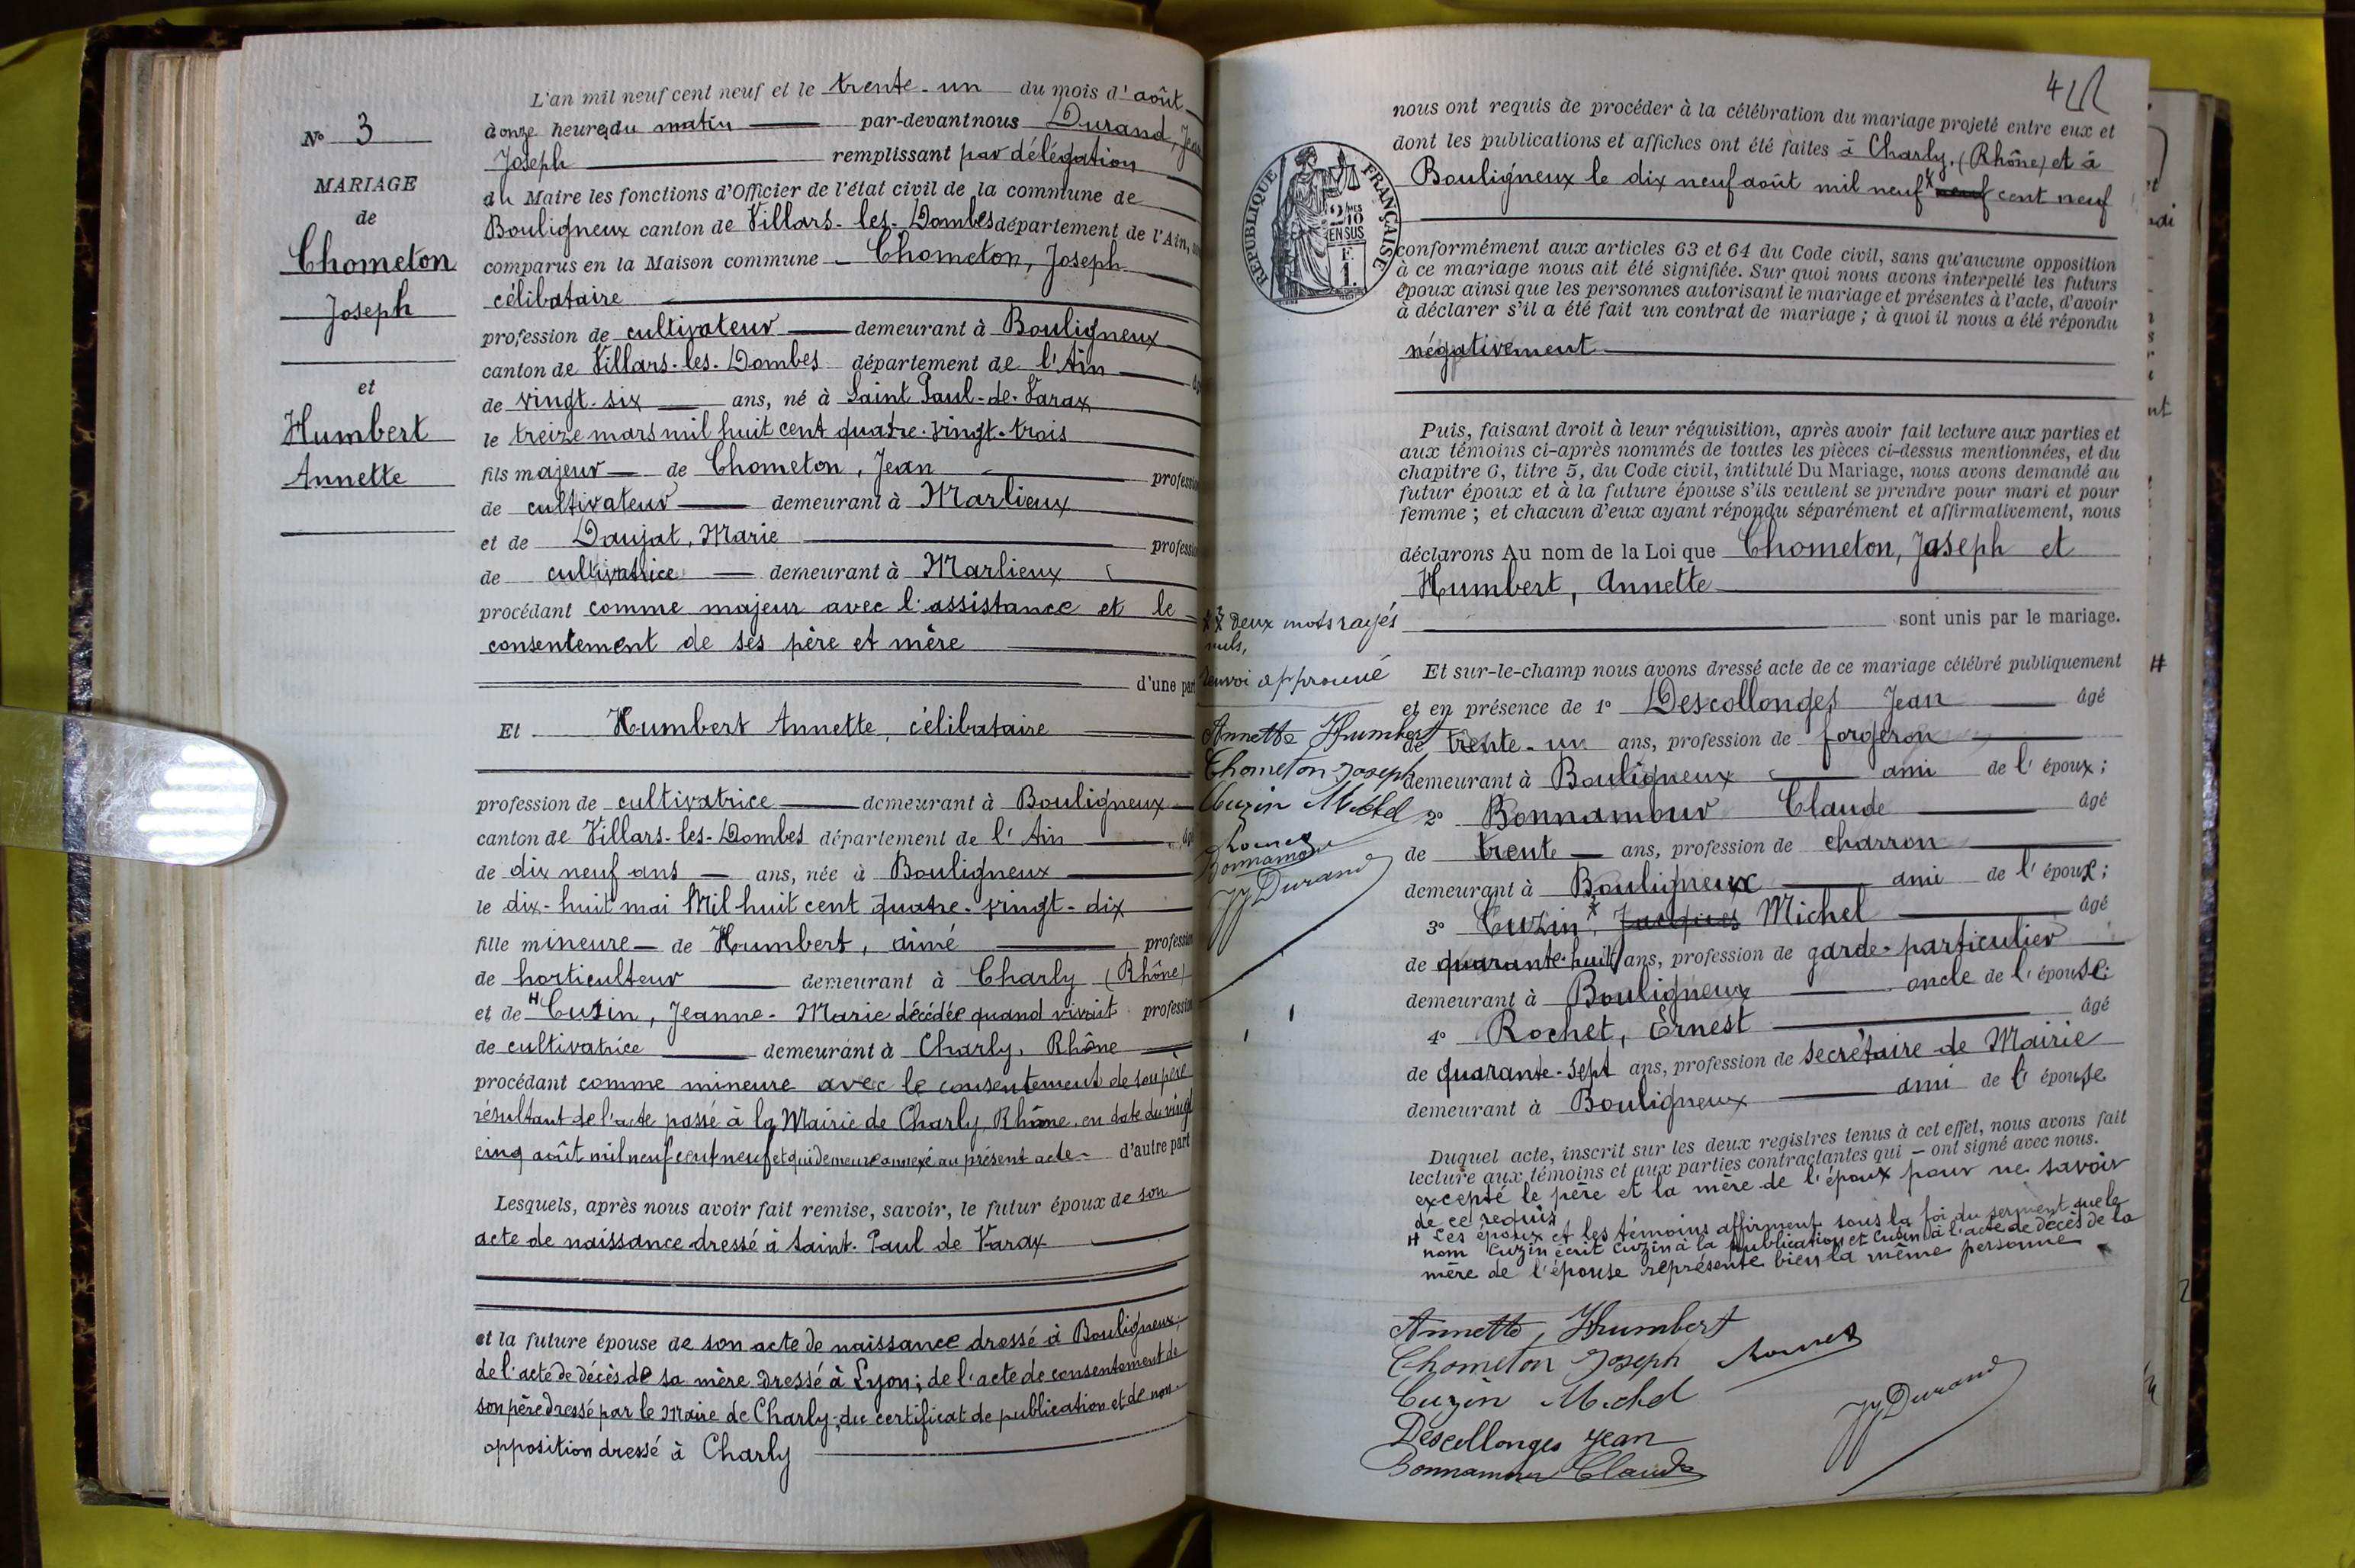 N° 3
MARIAGE
de
Chometon
Joseph
et
Humbert
Annette
L'an mil neuf cent neuf et le trente-un du mois d'août
à onze heures du matin par-devant nous Durand, Jean
Joseph remplissant par délégation
du Maire les fonctions d'Officier de l'état civil de la commune de
Bouligneux canton de Villars-les-Dombes département de l'Ain,
comparus en la Maison commune Chometon, Joseph
célibataire
profession de cultivateur demeurant à Bouligneux
canton de Villars-les-Dombes département de l'Ain
de vingt-six ans, né à Saint Paul-de-Varax
le treize mars mil huit cent quatre-vingt-trois
fils majeur de Chometon, Jean profession
de cultivateur demeurant à Marlieux
et de Daujat, Marie profession
de cultivatrice demeurant à Marlieux
procédant comme majeur avec l'assistance et le
consentement de ses père et mère
d'une part
Et Humbert Annette, célibataire
profession de cultivatrice demeurant à Bouligneux
canton de Villars-les-Dombes département de l'Ain
de dix neuf ans ans, née à Bouligneux
le dix-huit mai Mil huit cent quatre-vingt-dix
fille mineure de Humbert, aimé profession
de horticulteur demeurant à Charly (Rhône)
et de # Cusin, Jeanne-Marie décédée quand vivait profession
de cultivatrice demeurant à Charly, Rhône
procédant comme mineure avec le consentement de son père
résultant de l'acte passé à la Mairie de Charly, Rhône, en date du vingt
cinq août mil neuf cent neuf et qui demeure annexé au présent acte d'autre part
Lesquels, après nous avoir fait remise, savoir, le futur époux de son
acte de naissance dressé à Saint-Paul de Varax
et la future épouse de son acte de naissance dressé à Bouligneux,
de l'acte de décès de sa mère dressé à Lyon; de l'acte de consentement de
son père dressé par le Maire de Charly; du certificat de publication et de non
opposition dressé à Charly
nous ont requis de procéder à la célébration du mariage projeté entre eux et
dont les publications et affiches ont été faites à Charly, (Rhône) et à
Bouligneux le dix neuf août mil neuf x neuf cent neuf
RÉPUBLIQUE FRANÇAISE
2/10
EN SUS
F.
1.
conformément aux articles 63 et 64 du Code civil, sans qu'aucune opposition
à ce mariage nous ait été signifiée. Sur quoi nous avons interpellé les futurs
époux ainsi que les personnes autorisant le mariage et présentes à l'acte, d'avoir
à déclarer s'il a été fait un contrat de mariage; à quoi il nous a été répondu
négativement
Puis, faisant droit à leur réquisition, après avoir fait lecture aux parties et
aux témoins ci-après nommés de toutes les pièces ci-dessus mentionnées, et du
chapitre 6, titre 5, du Code civil, intitulé Du Mariage, nous avons demandé au
futur époux et à la future épouse s'ils veulent se prendre pour mari et pour
femme; et chacun d'eux ayant répondu séparément et affirmativement, nous
déclarons Au nom de la Loi que Chometon, Joseph et
Humbert, Annette
sont unis par le mariage.
x x deux mots rayés
nuls,
renvoi approuvé
Annette Humbert
Chometon Joseph
Cuzin Michel
Bonnamour
JJ Durand
Et sur-le-champ nous avons dressé acte de ce mariage célébré publiquement #
et en présence de 1° Descollonges Jean âgé
de trente-un ans, profession de forgeron
demeurant à Bouligneux ami de l'époux;
2° Bonnamour Claude âgé
de trente ans, profession de charron
demeurant à Bouligneux ami de l'époux;
3° Cuzin x Jacques Michel âgé
de quarante-huit ans, profession de garde-particulier
demeurant à Bouligneux oncle de l'épouse;
4° Rochet, Ernest âgé
de quarante-sept ans, profession de secrétaire de Mairie
demeurant à Bouligneux ami de l'épouse
Duquel acte, inscrit sur les deux registres tenus à cet effet, nous avons fait
lecture aux témoins et aux parties contractantes qui - ont signé avec nous.
excepté le père et la mère de l'époux pour ne savoir
de ce requis
# Les époux et les témoins affirment sous la foi du serment que le
nom Cuzin écrit Cuzin à la publication et Cusin à l'acte de décès de la
mère de l'épouse représente bien la même personne
Annette Humbert
Chometon Joseph
Cuzin Michel
Descollonges Jean
Bonnamour Claude
JJ Durand